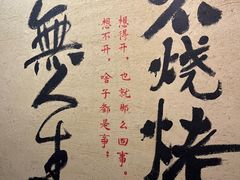 不烧烤
想得开，也就那么回事。
想不开，啥子都是事？
無人生